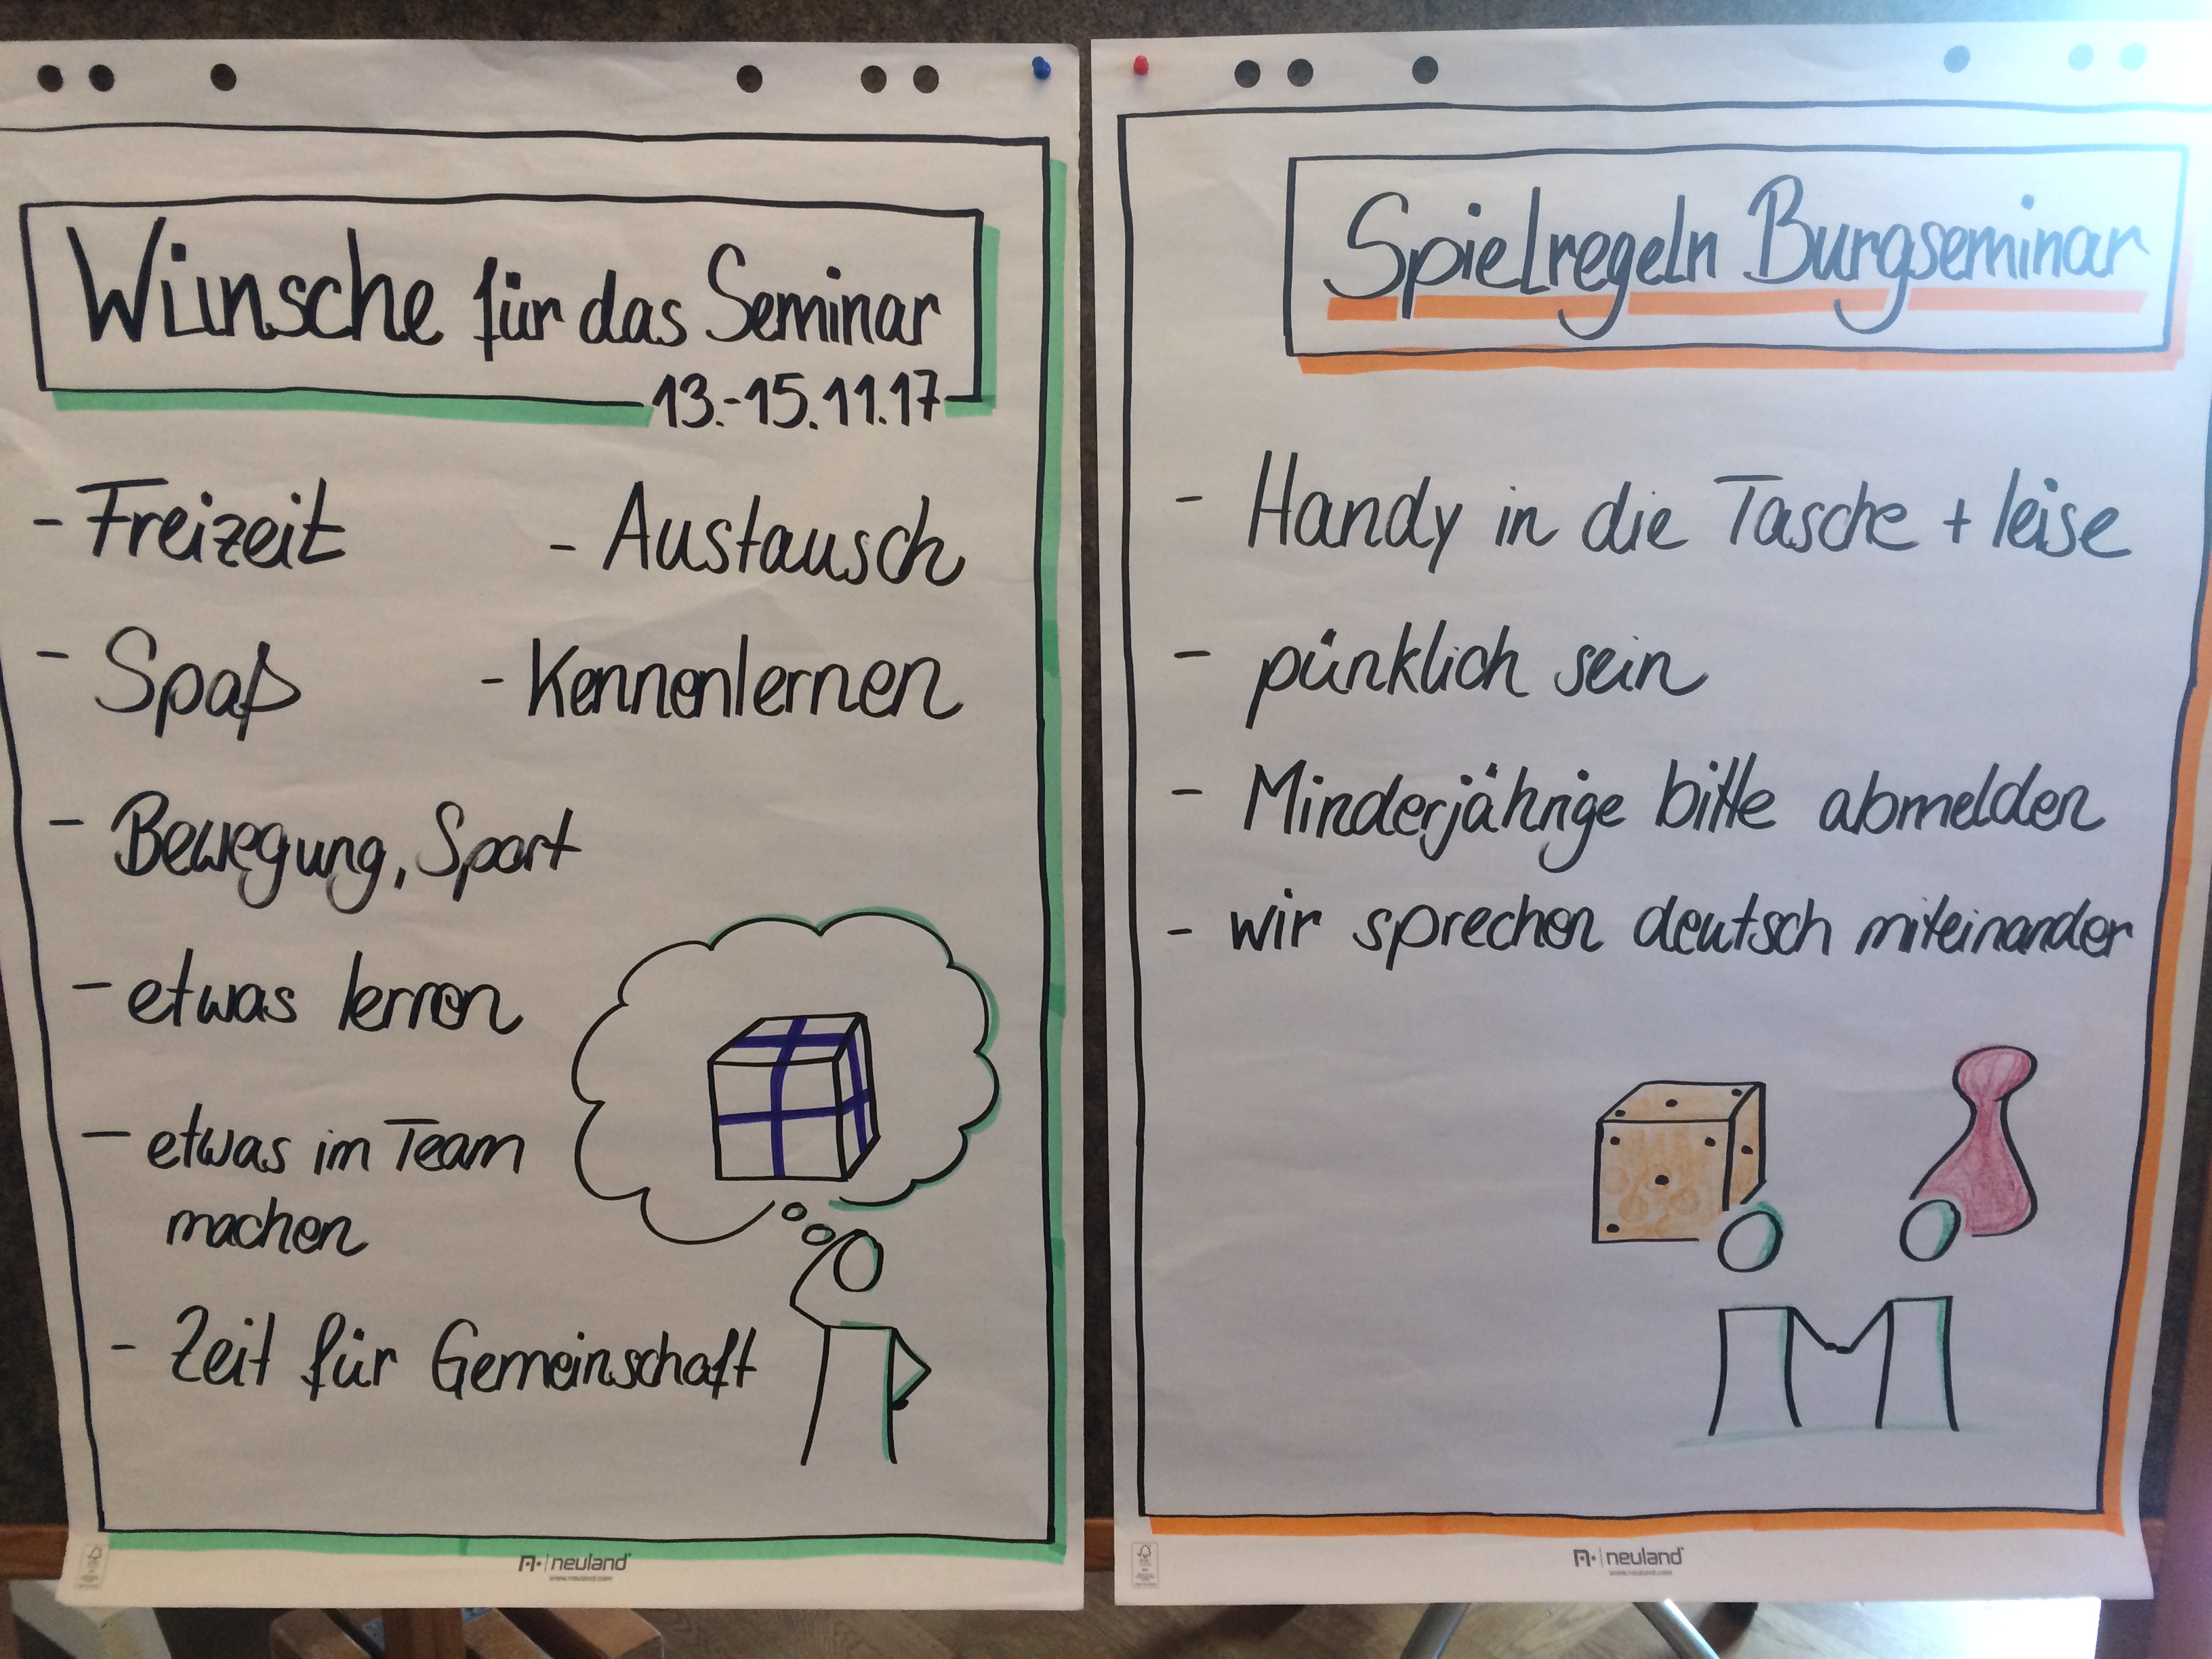 Wünsche für das Seminar
13.-15.11.17
- Freizeit
- Austausch
- Spaß
- Kennenlernen
- Bewegung, Sport
- etwas lernen
- etwas im Team
machen
- Zeit für Gemeinschaft
neuland
www.neuland.com
Spielregeln Burgseminar
- Handy in die Tasche + leise
- pünklich sein
- Minderjährige bitte abmelden
- wir sprechen deutsch miteinander
neuland
www.neuland.com